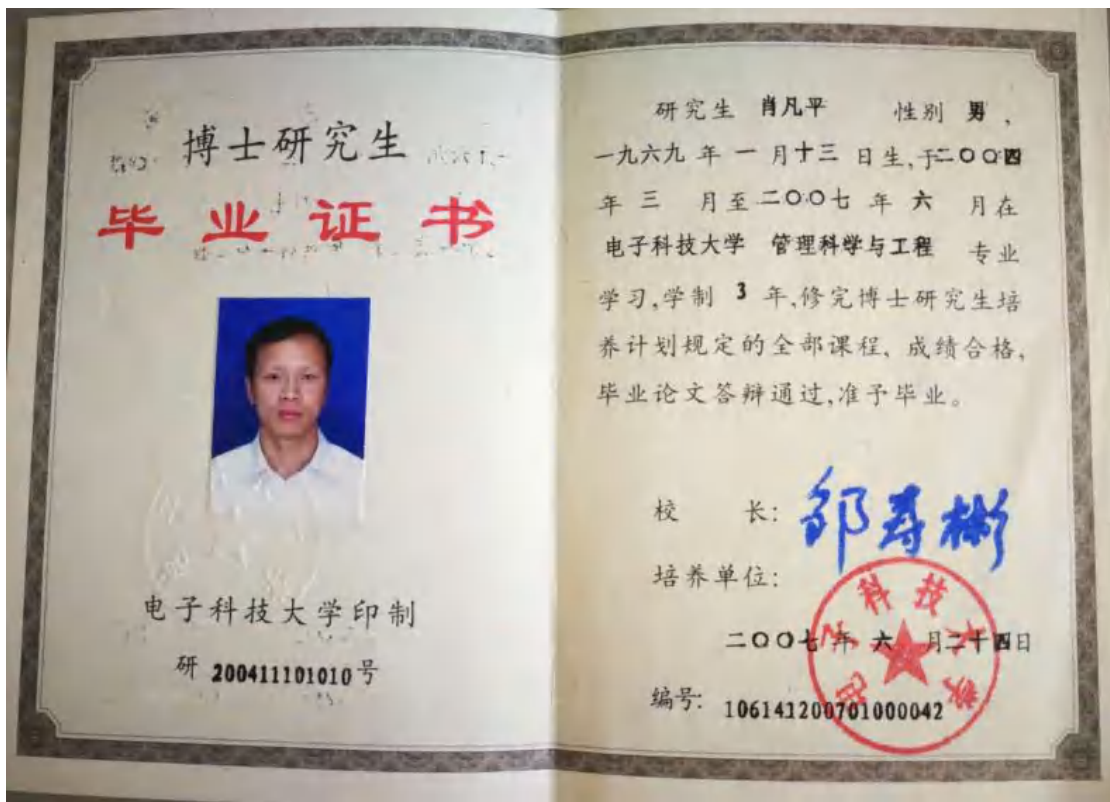 博士研究生
毕业证书
电子科技大学印制
研 200411101010 号
研究生 肖凡平 性别 男 、
一九六九 年 一 月十三 日生,于二〇〇四
年 三 月至二〇〇七 年 六 月在
电子科技大学 管理科学与工程 专业
学习,学制 3 年,修完博士研究生培
养计划规定的全部课程, 成绩合格,
毕业论文答辩通过,准予毕业。
校 长: 邹寿彬
培养单位:
电子科技大学
二〇〇七 年 六 月二十四日
编号: 106141200701000042